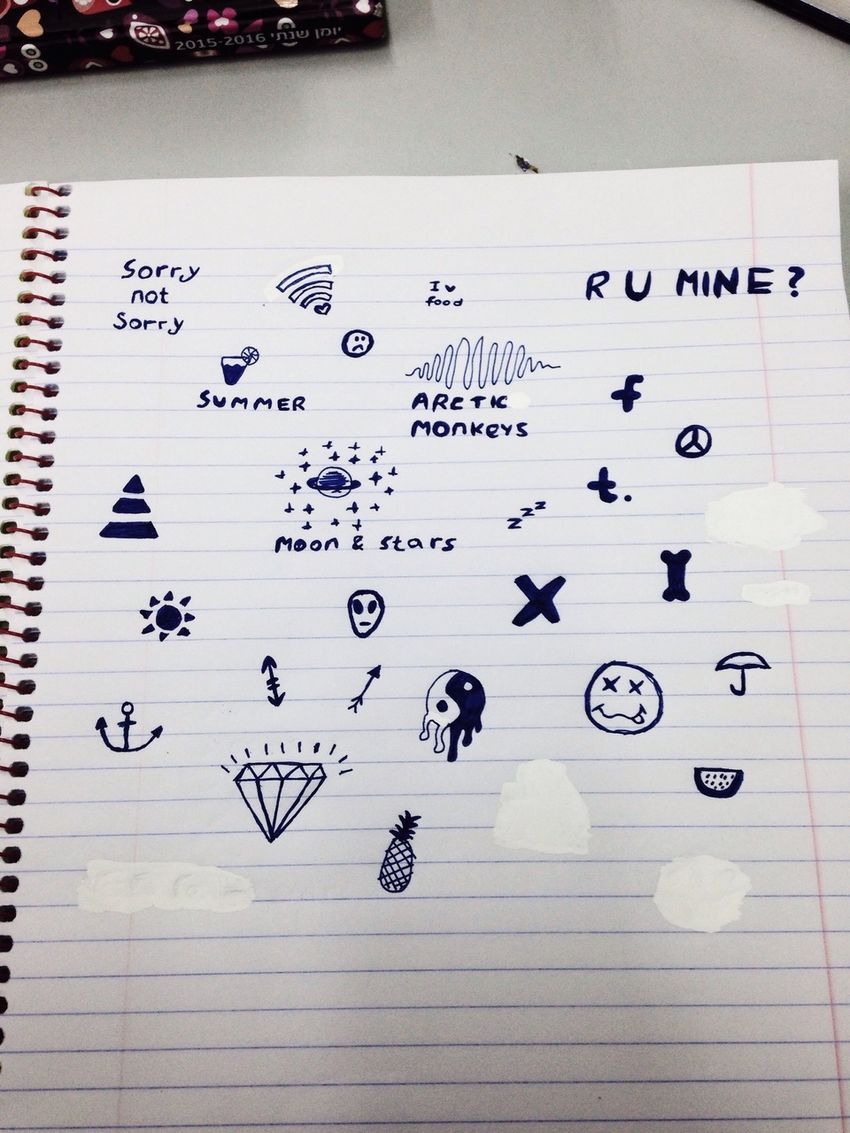 יומן שנתי 2015-2016
Sorry
not
Sorry
I ♥
food
R U MINE?
SUMMER
ARCTIC
MONKEYS
f
t.
zzz
Moon & stars